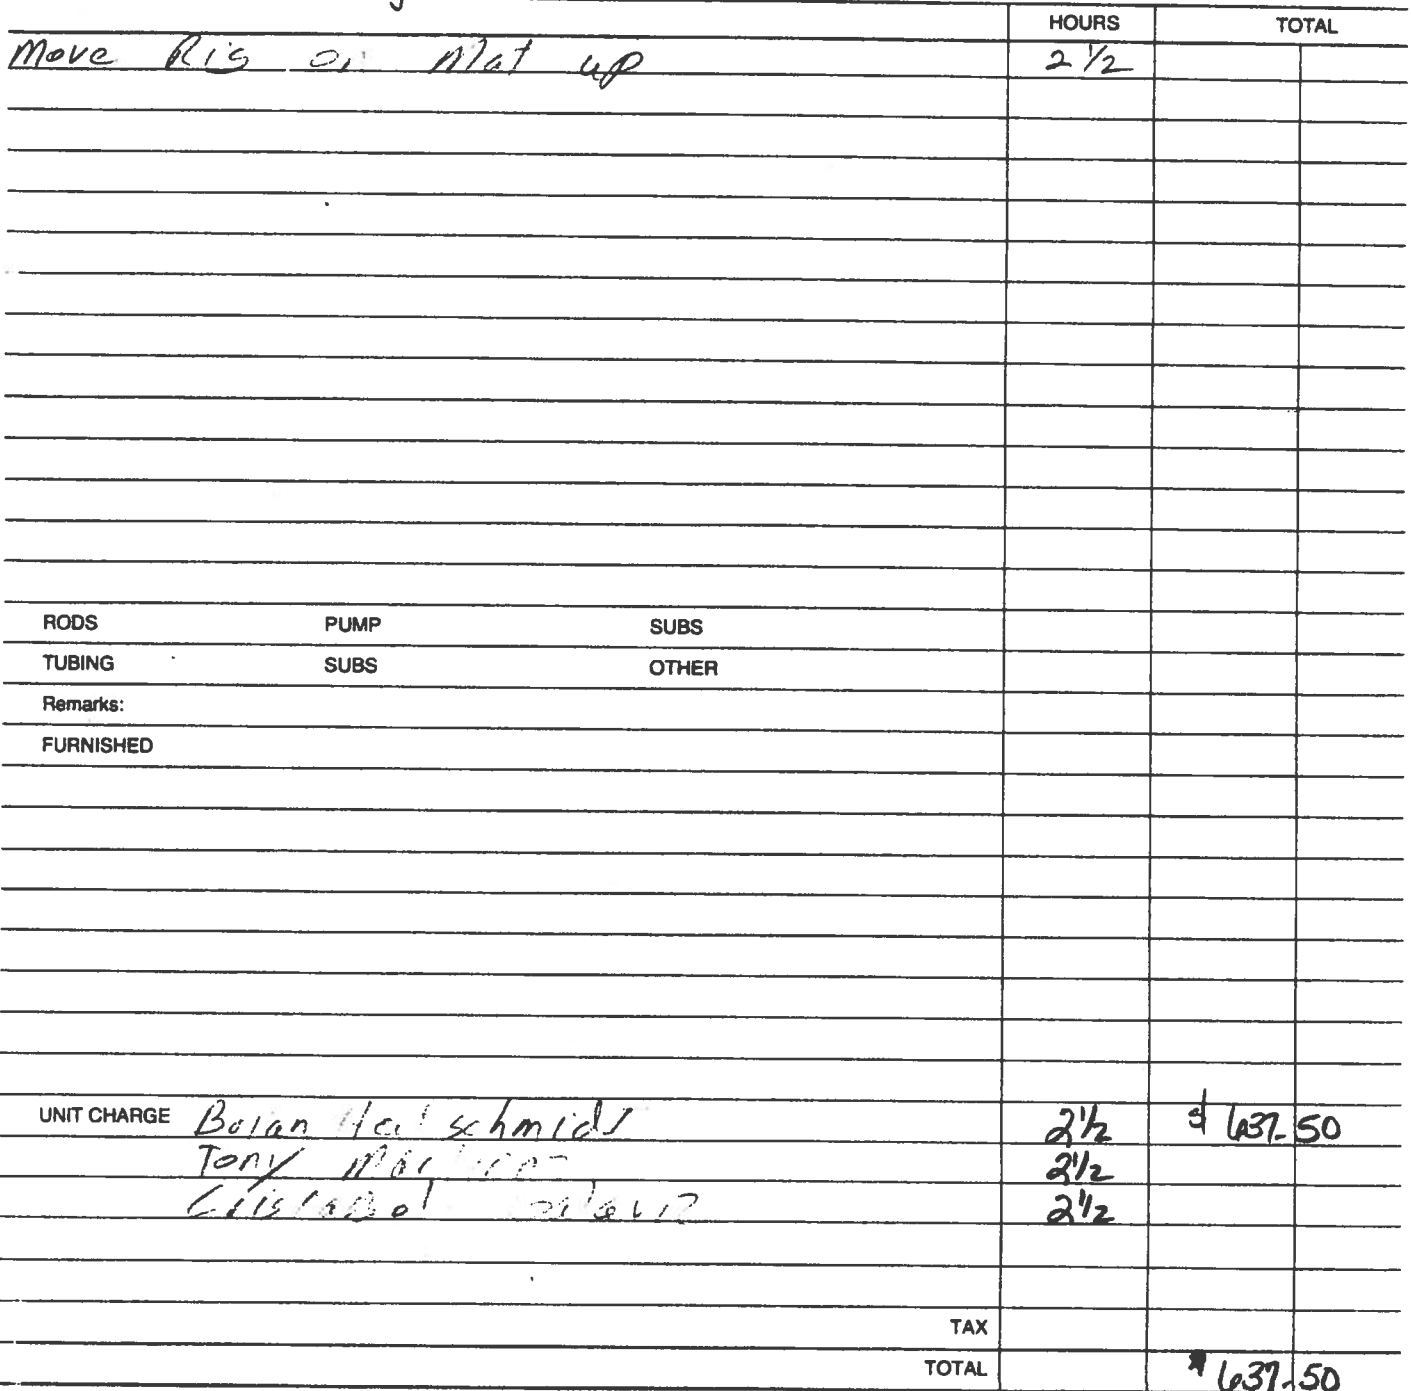 HOURS TOTAL
Move Rig on Mat up 2 1/2
RODS PUMP SUBS
TUBING SUBS OTHER
Remarks:
FURNISHED
UNIT CHARGE Brian schmidt 2 1/2 $ 637.50
Tony 2 1/2
2 1/2
TAX
TOTAL $ 637.50